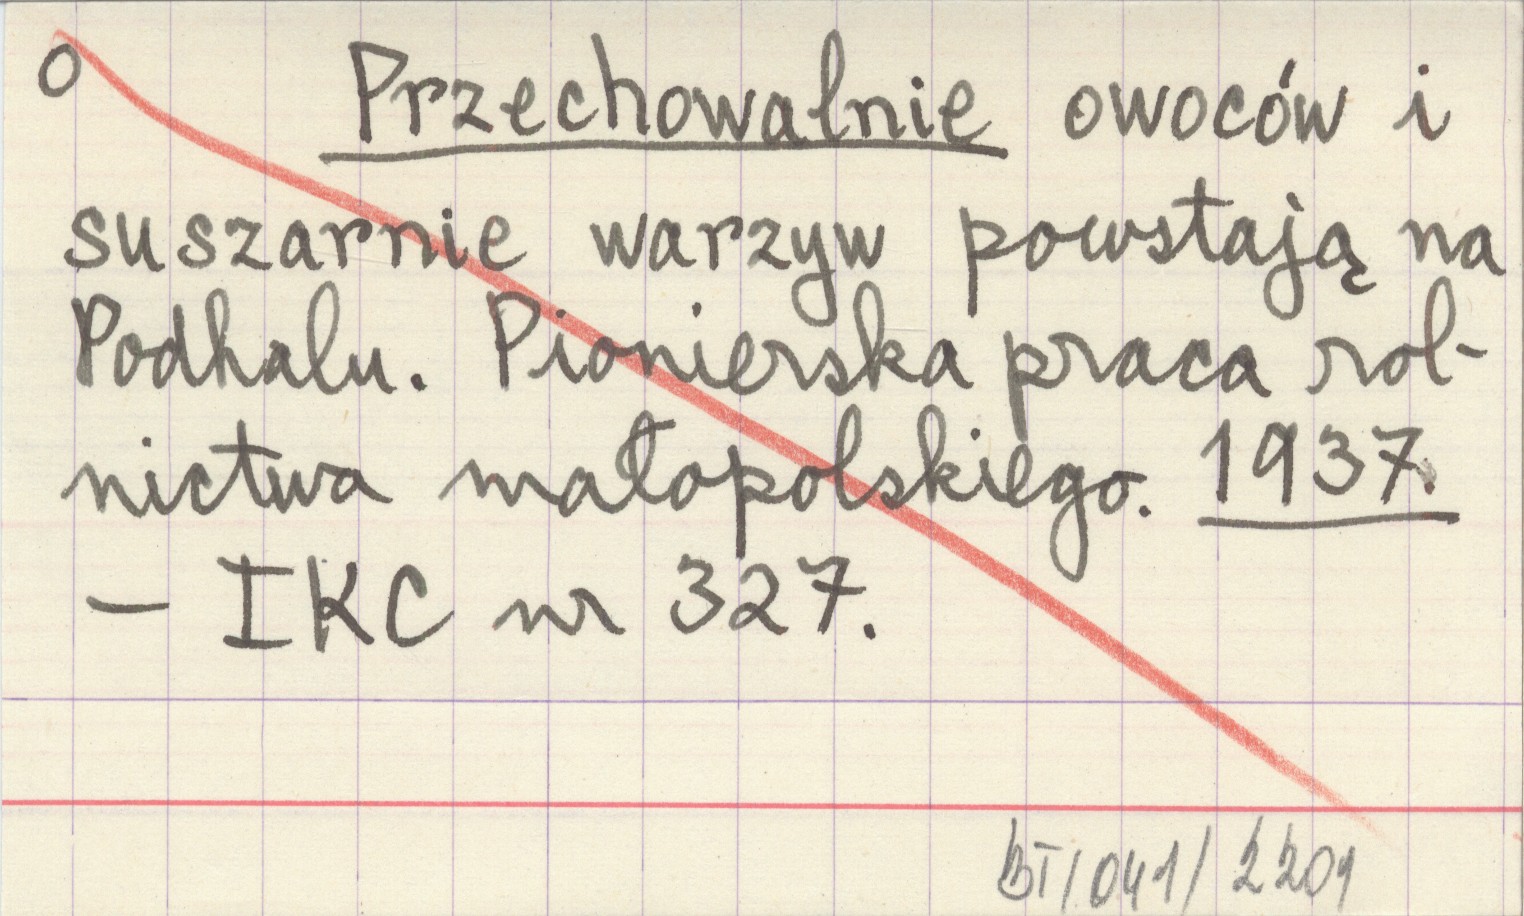 o Przechowalnie owoców i
suszarnie warzyw powstają na
Podhalu. Pionierska praca rol-
nictwa małopolskiego. 1937.
— IKC nr 327.
BT/041/2201